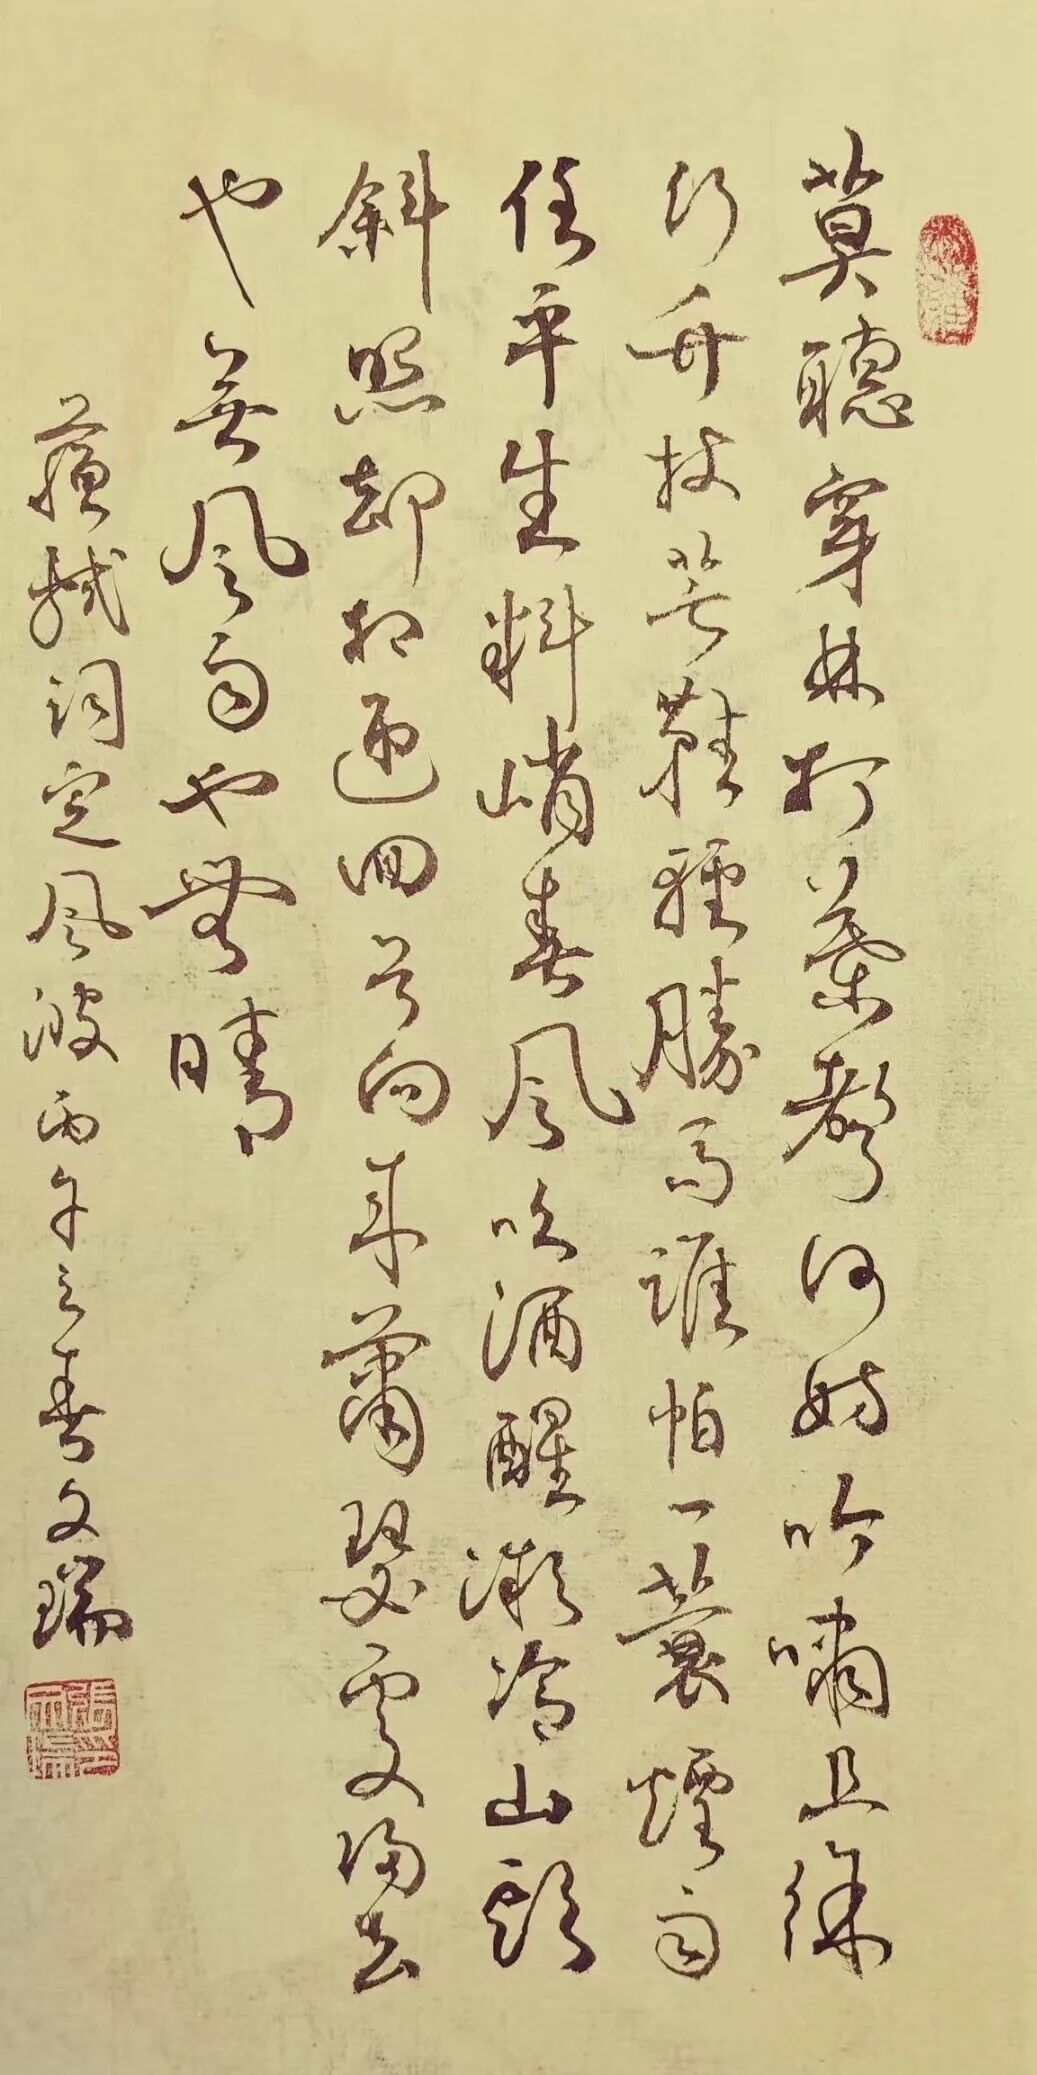 莫聽穿林打葉聲何妨吟嘯且徐
行竹杖芒鞋輕勝馬誰怕一蓑煙雨
任平生料峭春風吹酒醒微冷山頭
斜照却相迎回首向來蕭瑟處歸去
也無風雨也無晴
蘇軾詞定風波丙午之春文瑞